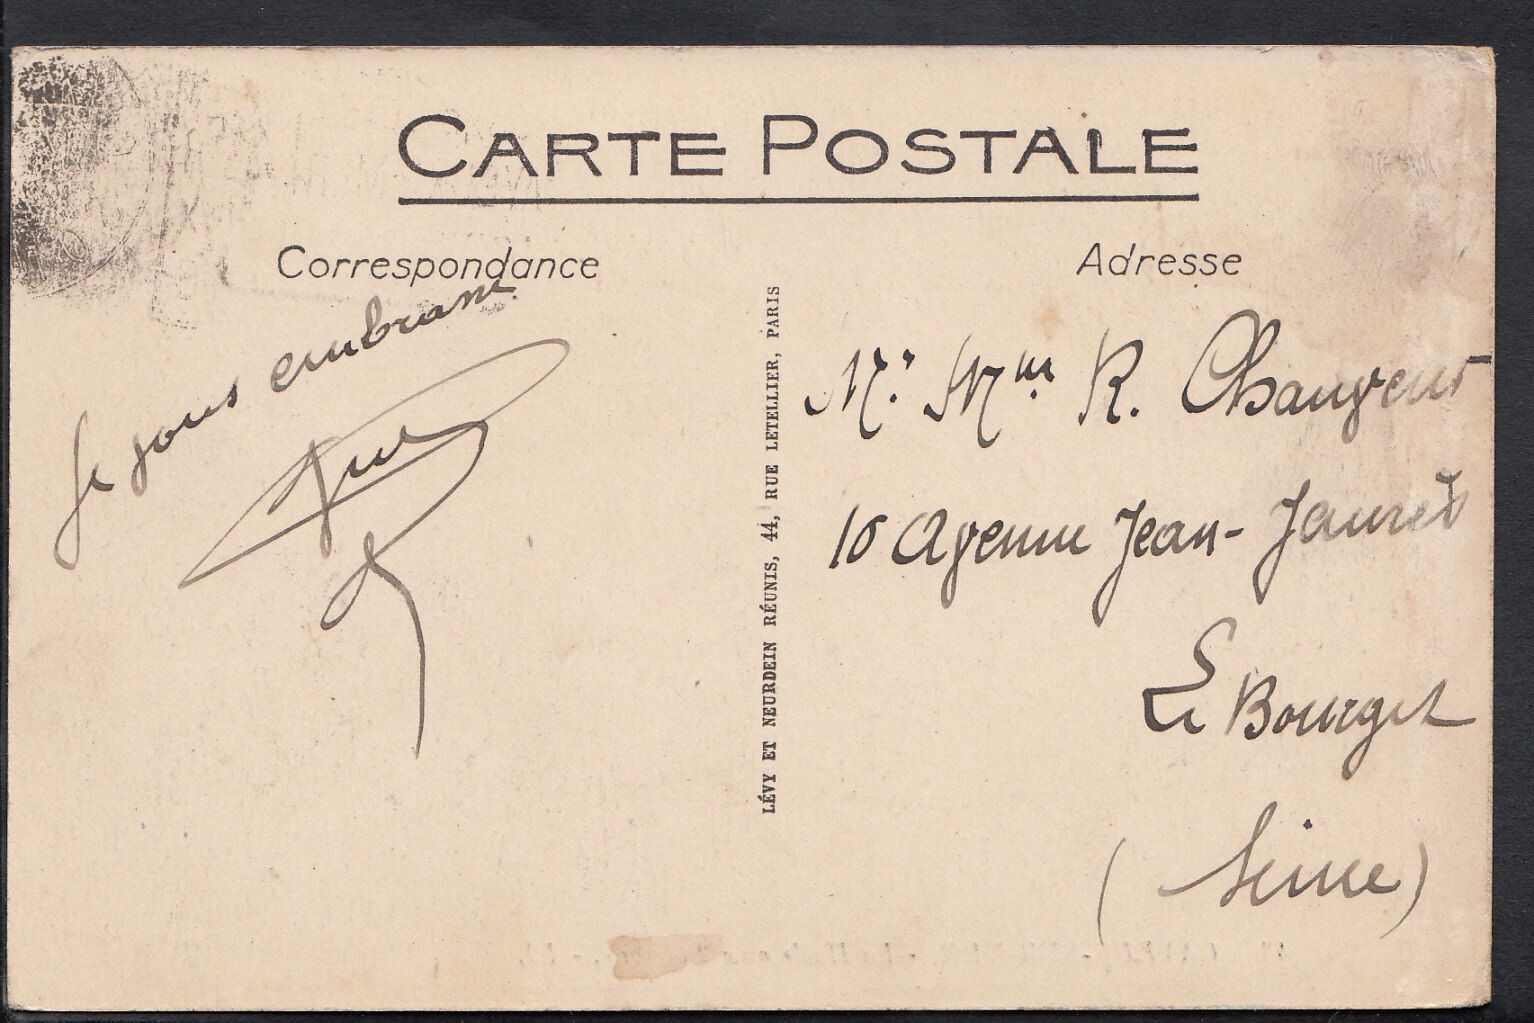 CARTE POSTALE
Correspondance
Adresse
Je vous embrasse
LÉVY ET NEURDEIN RÉUNIS, 44, RUE LETELLIER, PARIS
Mr. Mme R.
10 Avenue Jean-Jaurès
Le Bourget
(Seine)